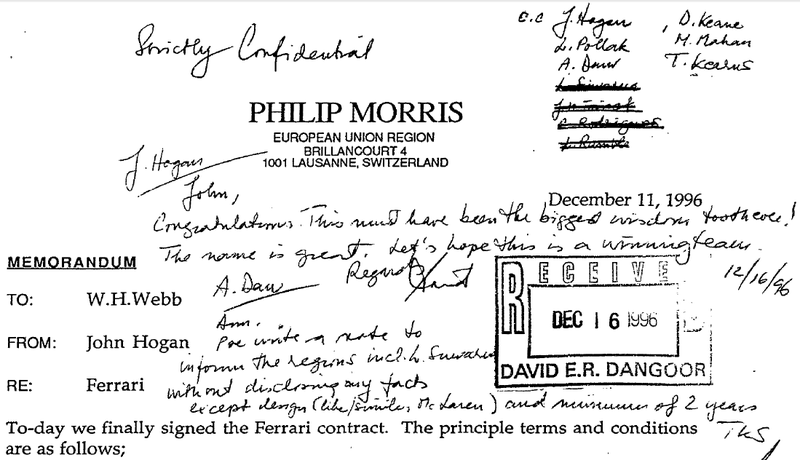 Strictly Confidential
c.c J. Hogan, D. Keane
L. Pollak M. Mahan
A. Daw T. Kearns
PHILIP MORRIS
EUROPEAN UNION REGION
BRILLANCOURT 4
1001 LAUSANNE, SWITZERLAND
J. Hogan
John,
December 11, 1996
Congratulations. This must have been the biggest wisdom tooth ever!
The name is great. Let's hope this is a winning team.
Regards
12/16/96
MEMORANDUM
RECEIVE
DEC 16 1996
DAVID E.R. DANGOOR
TO: W.H.Webb
A. Daw
Ann.
FROM: John Hogan
Pse write a note to
inform the regions incl. L.
RE: Ferrari
without disclosing any facts
except design (like/similar McLaren) and minimum of 2 years
Tks
To-day we finally signed the Ferrari contract. The principle terms and conditions
are as follows;